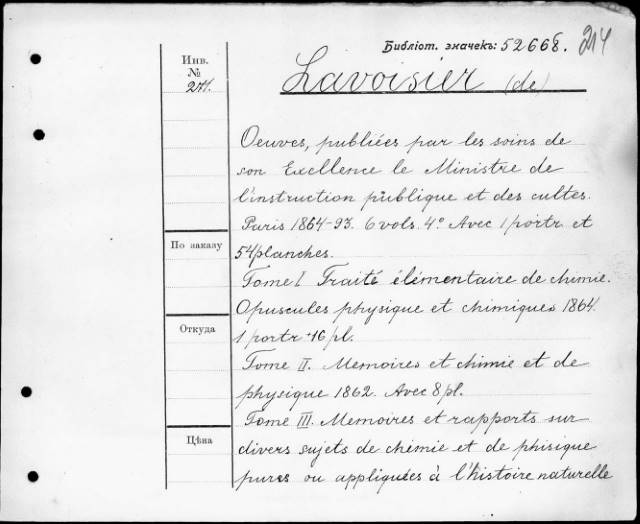 Библіот. значекъ: 52668. 214
Инв.
№
271.
Lavoisier (de)
Oeuves, publiées par les soins de
son Excellence le Ministre de
l'instruction publique et des cultes.
Paris 1864-93. 6 vols. 4° Avec 1 portr et
54 planches.
По заказу
Tome I Traité élémentaire de chimie.
Opuscules physique et chimiques 1864.
1 portr + 16 pl.
Откуда
Tome II. Memoires et chimie et de
physique 1862. Avec 8 pl.
Tome III. Memoires et rapports sur
Цѣна
divers sujets de chemie et de phisique
pures ou appliquées à l'histoire naturelle